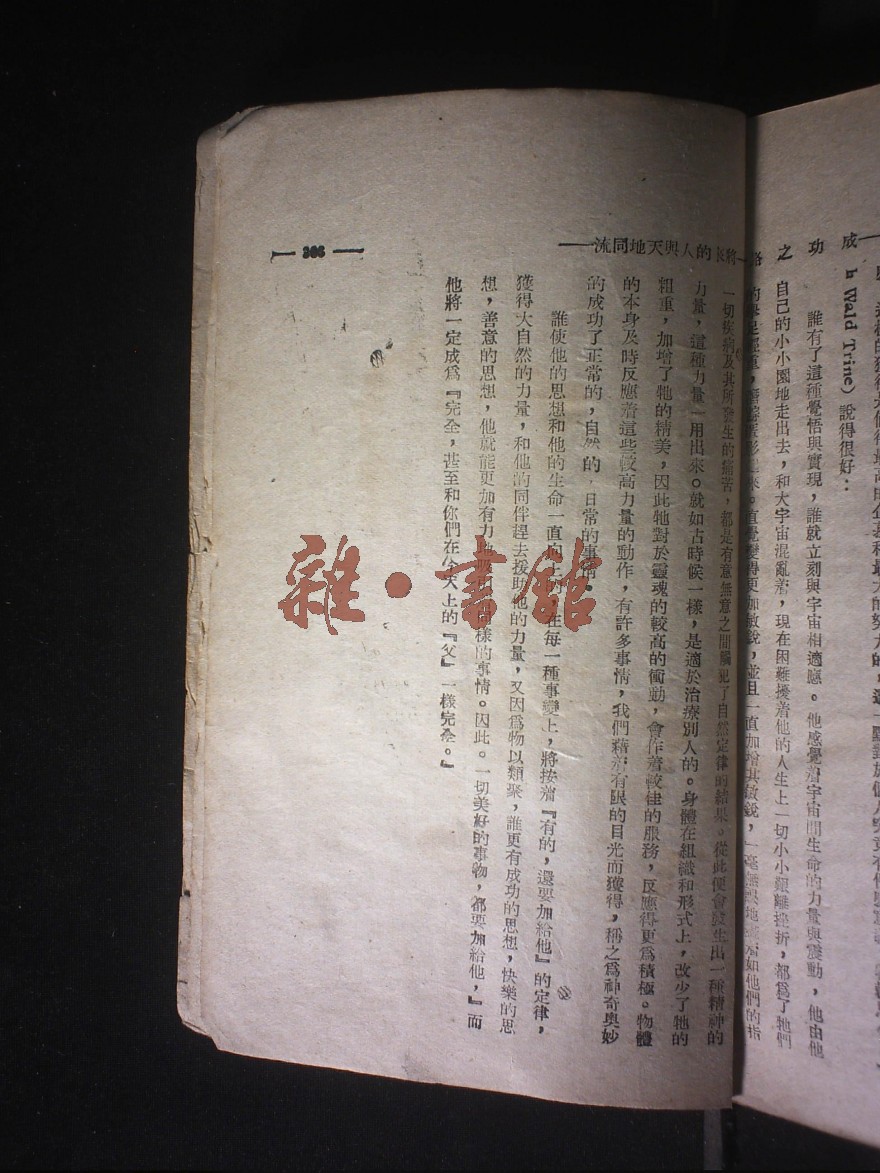 成
功
之
路
h Wald Trine）說得很好：
誰有了這種覺悟與實現，誰就立刻與宇宙相適應。他感覺着宇宙間生命的力量與震動，他由他
自己的小小園地走出去，和大宇宙混亂着，現在困難擾着他的人生上一切小小艱難挫折，都爲了牠們
來。直覺變得更加敏銳，並且一直加增其敏銳，
流同地天與人的長
一切疾病及其所發生的痛苦，都是有意無意之間觸犯了自然定律的結果。從此便會發生出一種精神的
力量，這種力量一用出來。就如古時候一樣，是適於治療別人的。身體在組織和形式上，改少了牠的
粗重，加增了牠的精美，因此牠對於靈魂的較高的衝動，會作着較佳的服務，反應得更爲積極。物體
的本身及時反應着這些較高力量的動作，有許多事情，我們藉着有限的目光而獲得，稱之爲神奇奧妙
的成功了正常的，自然的，日常的事情。
誰使他的思想和他的生命一直向上，在每一種事變上，將按着『有的，還要加給他』的定律，
獲得大自然的力量，和他的同伴趕去援助他的力量，又因爲物以類聚，誰更有成功的思想，快樂的思
想，善意的思想，他就能更加有力地吸同樣的事情。因此。一切美好的事物，都要加給他，』而
他將一定成爲『完全，甚至和你們在今天上的『父』一樣完全。』
306
雜·書館